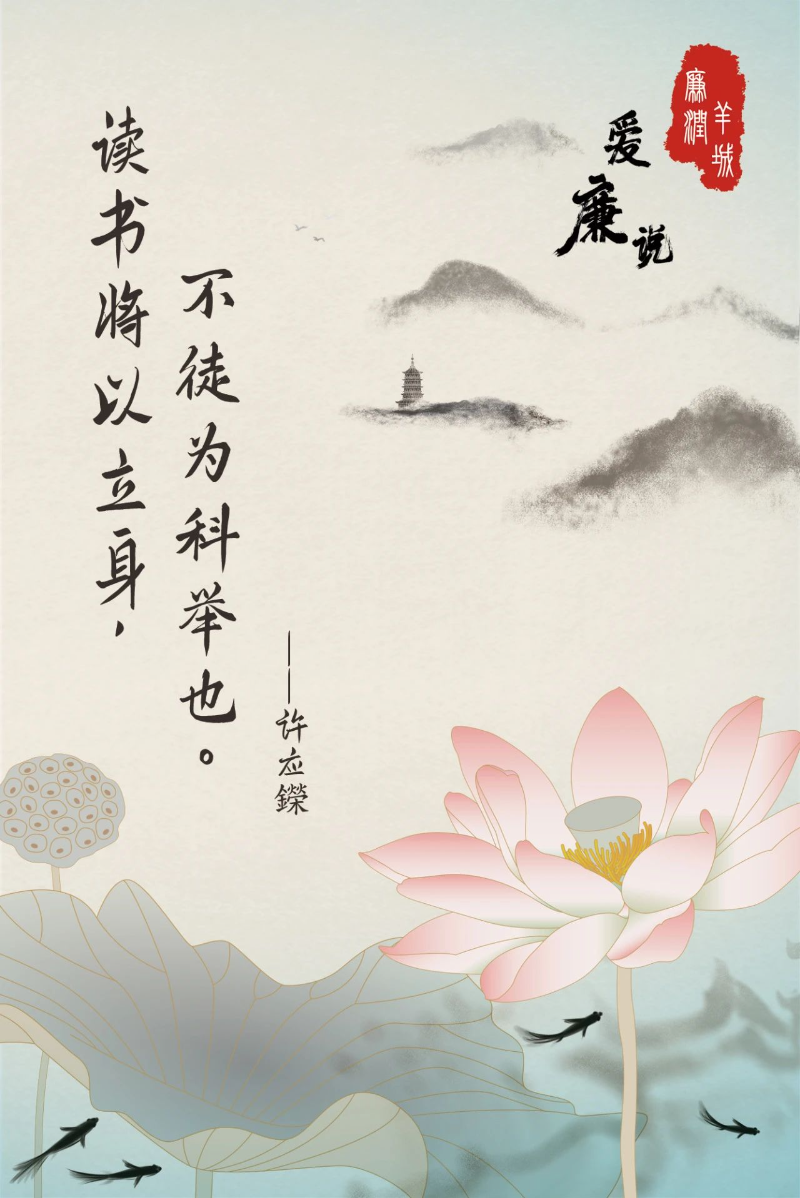 读书将以立身，
不徒为科举也。
——许应鑅
爱廉说
廉潤
羊城